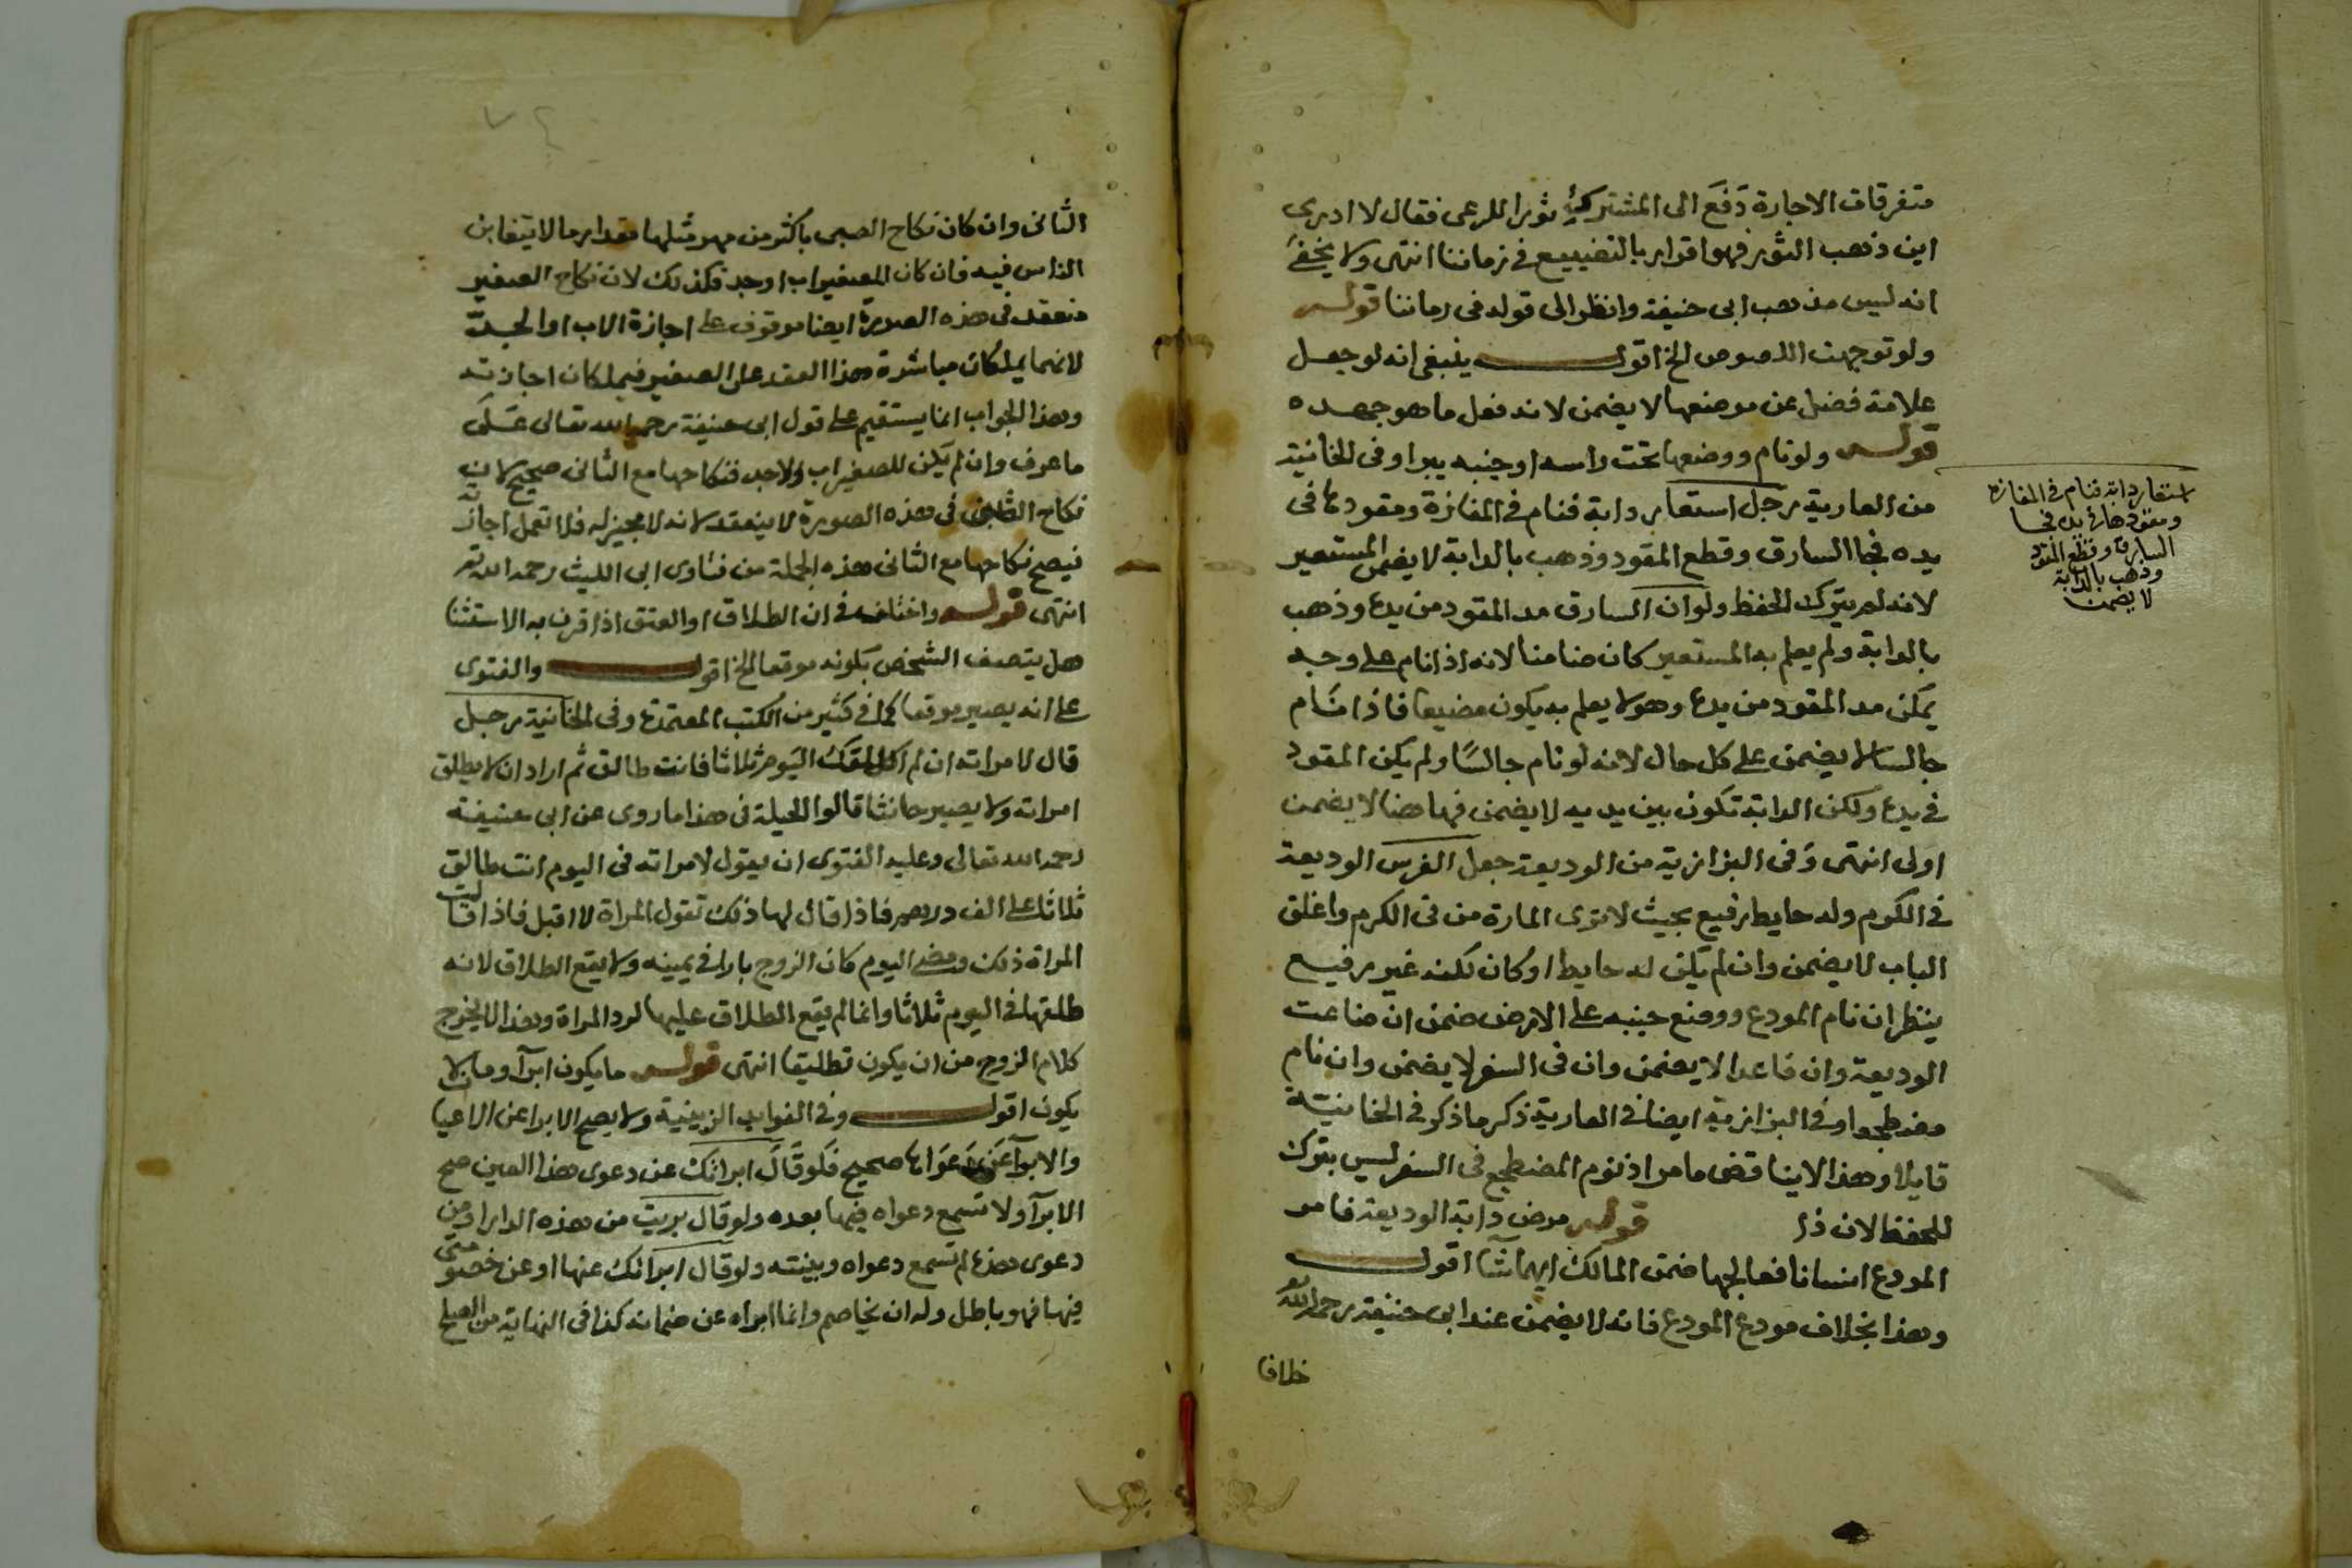 متفرقات الاجارة دَفَع الى المشترك ثورا للرعى فقال لا ادرى
اين ذهب الثور فهو اقرار بالتضييع فى زماننا انتهى ولا يخفى
انه ليس مذهب ابى حنيفة وانظر الى قوله فى زماننا قوله
ولو توجهت اللصوص الخ اقول ينبغى انه لو جعل
علامة فضل عن موضعها لا يضمن لانه فعل ما هو جهده
قوله ولو نام ووضعها تحت راسه او جنبه يبرا وفى الخانية
من العارية رجل استعار دابة فنام فى المفازة ومقودها فى
يده فجا السارق وقطع المقود وذهب بالدابة لا يضمن المستعير
لانه لم يترك الحفظ ولو ان السارق مد المقود من يده وذهب
بالدابة ولم يعلم به المستعير كان ضامنا لانه اذا نام على وجه
يمكن مد المقود من يده وهو لا يعلم به يكون مضيعا فاذا نام
جالسا لا يضمن على كل حال لانه لو نام جالسًا ولم يكن المقود
فى يده ولكن الدابة تكون بين يديه لا يضمن فهاهنا لا يضمن
اولى انتهى وَفى البزازية من الوديعة جعل الفرس الوديعة
فى الكرم وله حايط رفيع بحيث لا ترى المارة من فى الكرم واغلق
الباب لا يضمن وان لم يكن له حايط او كان لكنه غير رفيع
ينظر ان نام المودع ووضع جنبه على الارض ضمن ان ضاعت
الوديعة وان قاعدا لا يضمن وان فى السفر لا يضمن وان نام
مضطجعا وفى البزازية ايضا فى العارية ذكر ما ذكر فى الخانية
قايلا وهذا لا يناقض ما مر اذ نوم المضطجع فى السفر ليس بترك
للحفظ لان ذا قوله مرض دابة الوديعة فامر
المودع انسانا فعالجها ضمن المالك ايهما شآ اقول
وهذا بخلاف مودع المودع فانه لا يضمن عند ابى حنيفة رحمه الله تع
خلافا
استعار دابة فنام فى المفازة
ومقودها فى يده فجا
السارق وقطع المقود
وذهب بالدابة
لا يضمن
الثانى وان كان نكاح الصبى باكثر من مهر مثلها مقدار ما لا يتغابن
الناس فيه فان كان للصغير اب او جد فكذلك لان نكاح الصغير
منعقد فى هذه الصورة ايضا موقوف على اجازة الاب او الجد
لانهما يملكان مباشرة هذا العقد على الصغير فيملكان اجازته
وهذا الجواب انما يستقيم على قول ابى حنيفة رحمه الله تعالى عَلَى
ما عرف وان لم يكن للصغير اب ولا جد فنكاحها مع الثانى صحيح لان
نكاح الصبى فى هذه الصورة لا ينعقد لانه لا مجيز له فلا تعمل اجازته
فيصح نكاحها مع الثانى هذه الجملة من فتاوى ابى الليث رحمه الله تع
انتهى قوله واختلف فى ان الطلاق او العتق اذا قرن به الاستثنا
هل يتصف الشخص بكونه موقعا الخ اقول والفتوى
على انه يصير موقعا كما فى كثير من الكتب المعتمدة وفى الخانية رجل
قال لامراته ان لم اطلقك اليوم ثلاثا فانت طالق ثم اراد ان لا يطلق
امراته ولا يصير حانثا قالوا الحيلة فى هذا ما روى عن ابى حنيفة
رحمه الله تعالى وعليه الفتوى ان يقول لامراته فى اليوم انت طالق
ثلاثا على الف درهم فاذا قال لها ذلك تقول المراة لا اقبل فاذا قالت
المراة ذلك ومضى اليوم كان الزوج بارا فى يمينه ولا يقع الطلاق لانه
طلقها فى اليوم ثلاثا وانما لم يقع الطلاق عليها لرد المراة وهذا لا يخرج
كلام الزوج من ان يكون تطليقا انتهى قوله ما يكون ابرآ وما لا
يكون اقول وفى الفوايد الزينية ولا يصح الابرا عن الاعيان
والابرآ عَن دَعوَاها صحيح فلو قال ابراتك عن دعوى هذا العين صح
الابرآ ولا تسمع دعواه فيها بعده ولو قال بريت من هذه الدار او من
دعوى هذه لم تسمع دعواه وبينته ولو قال ابراتك عنها او عن خصومتى
فيها فهو باطل وله ان يخاصم وانما ابراه عن ضمانه كذا فى النهاية من الصلح